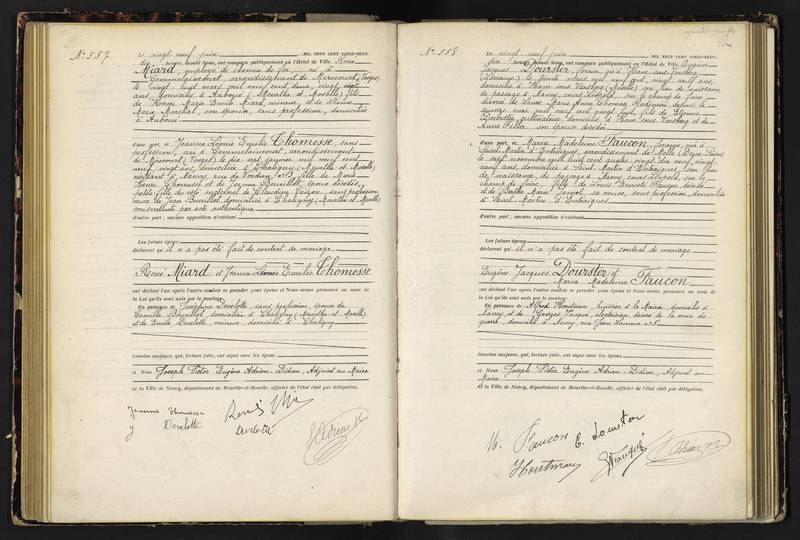 N° 557
Le vingt neuf juin MIL NEUF CENT VINGT-NEUF,
dix heures, devant Nous, ont comparu publiquement en l'Hôtel de Ville René
Miard employé de chemin de fer, né à
Gemmelaincourt, arrondissement de Mirecourt (Vosges)
le vingt huit mars mil neuf cent deux, vingt sept
ans, domicilié à Auboué (Meurthe et Moselle) fils
de Miard, mineur, et de Léonie
Marie Marchal, son épouse, sans profession, domiciliés
à Auboué
d'une part, et Jeanne Léonie Emilie Thomesse, sans
profession, née à Gemmelaincourt, arrondissement
de Mirecourt (Vosges) le dix sept janvier mil neuf cent
neuf, vingt ans, domiciliée à Chaligny (Meurthe et Moselle)
résidant à Nancy, rue de fille de Marie
Thomesse et de Jeanne Bouillot, époux décédés,
sans profession
veuve de Jean Bouillot, domiciliée à Chaligny (Meurthe et Moselle)
consentante par acte authentique
d'autre part ; aucune opposition n'existant
Les futurs époux
déclarent qu'il n'a pas été fait de contrat de mariage.
René Miard et Jeanne Léonie Emilie Thomesse
ont déclaré l'un après l'autre vouloir se prendre pour époux et Nous avons prononcé au nom de
la Loi qu'ils sont unis par le mariage.
En présence de Joséphine Develotte, sans profession, épouse de
Camille Bouillot, domiciliée à Chaligny (Meurthe et Moselle)
et de Emile Develotte, mineur, domicilié à Chaligny
témoins majeurs, qui, lecture faite, ont signé avec les époux
et Nous Joseph Victor Eugène Adrien Didion, Adjoint au Maire
de la Ville de Nancy, département de Meurthe-et-Moselle, officier de l'état civil par délégation.
Jeanne Thomesse
Develotte
Develotte
N° 558
Le vingt neuf juin MIL NEUF CENT VINGT-NEUF,
dix heures, devant Nous, ont comparu publiquement en l'Hôtel de Ville Eugène
Jacques Dourster, forain, né à Ham sous Varsberg
(Lorraine) le mars mil neuf cent, vingt neuf ans,
domicilié à Ham sous Varsberg (Moselle) son lieu de naissance
de passage à Nancy, cours Léopold, sur le champ de foire
divorcé de Laure Marie Anne depuis le
mai mil neuf cent vingt huit, fils de Etienne
Dourster, cultivateur, domicilié à Ham sous Varsberg et de
Anne son épouse décédée
d'une part, et Maria Madeleine Faucon, foraine, née à
Saint Martin d'Entraigues, arrondissement de Melle (Deux Sèvres)
le sept novembre mil neuf cent quatre vingt dix neuf, vingt
neuf ans, domiciliée à Saint Martin d'Entraigues, son lieu
de naissance, de passage à Nancy, cours Léopold, sur le
champ de foire, fille de Louis Faucon, décédé
et de Marie sa veuve, sans profession, domiciliée
à Saint Martin d'Entraigues
d'autre part ; aucune opposition n'existant
Les futurs époux
déclarent qu'il n'a pas été fait de contrat de mariage
Eugène Jacques Dourster et
Maria Madeleine Faucon
ont déclaré l'un après l'autre vouloir se prendre pour époux et Nous avons prononcé au nom de
la Loi qu'ils sont unis par le mariage.
En présence de Alfred Houtman, huissier à la Mairie, domicilié à
Nancy, et de Georges décoré de la croix de
guerre, domicilié à Nancy, rue n° 5
témoins majeurs, qui, lecture faite, ont signé avec les époux
et Nous Joseph Victor Eugène Adrien Didion, Adjoint au
Maire
de la Ville de Nancy, département de Meurthe-et-Moselle, officier de l'état civil par délégation.
M. Faucon E. Dourster
Houtman